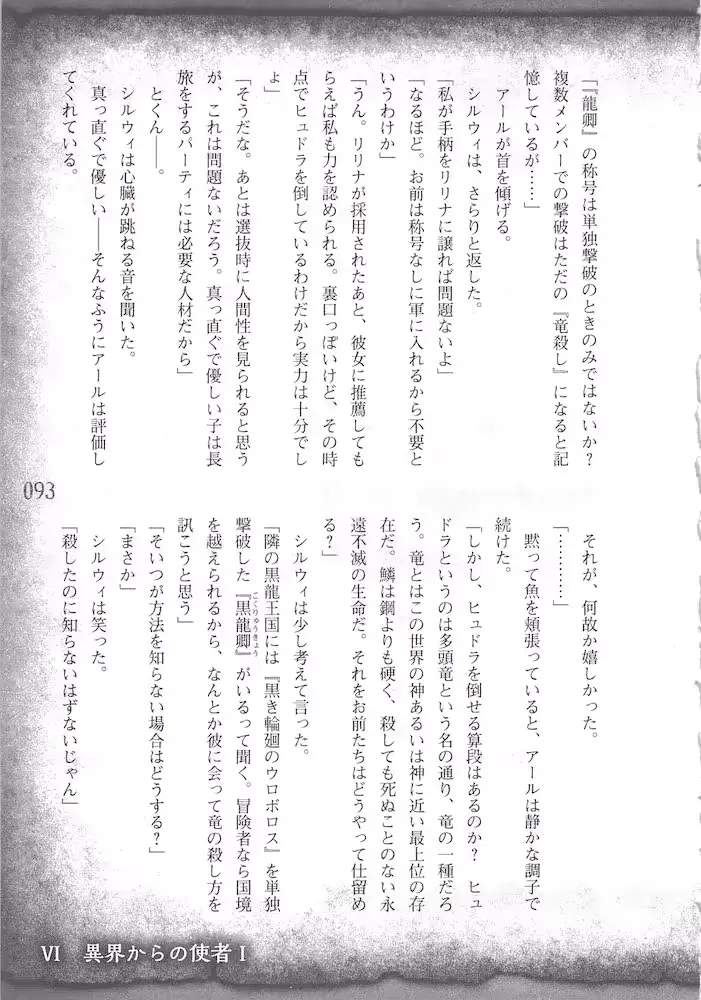 「『龍卿』の称号は単独撃破のときのみではないか？
複数メンバーでの撃破はただの『竜殺し』になると記
憶しているが……」
アールが首を傾げる。
シルウィは、さらりと返した。
「私が手柄をリリナに譲れば問題ないよ」
「なるほど。お前は称号なしに軍に入れるから不要と
いうわけか」
「うん。リリナが採用されたあと、彼女に推薦しても
らえば私も力を認められる。裏口っぽいけど、その時
点でヒュドラを倒しているわけだから実力は十分でし
ょ」
「そうだな。あとは選抜時に人間性を見られると思う
が、これは問題ないだろう。真っ直ぐで優しい子は長
旅をするパーティには必要な人材だから」
とくん――。
シルウィは心臓が跳ねる音を聞いた。
真っ直ぐで優しい――そんなふうにアールは評価し
てくれている。
それが、何故か嬉しかった。
「…………」
黙って魚を頬張っていると、アールは静かな調子で
続けた。
「しかし、ヒュドラを倒せる算段はあるのか？　ヒュ
ドラというのは多頭竜という名の通り、竜の一種だろ
う。竜とはこの世界の神あるいは神に近い最上位の存
在だ。鱗は鋼よりも硬く、殺しても死ぬことのない永
遠不滅の生命だ。それをお前たちはどうやって仕留め
る？」
シルウィは少し考えて言った。
「隣の黒龍王国には『黒き輪廻のウロボロス』を単独
撃破した『黒龍卿』がいるって聞く。冒険者なら国境
こくりゅうきょう
を越えられるから、なんとか彼に会って竜の殺し方を
訊こうと思う」
「そいつが方法を知らない場合はどうする？」
「まさか」
シルウィは笑った。
「殺したのに知らないはずないじゃん」
093
Ⅵ　異界からの使者Ⅰ